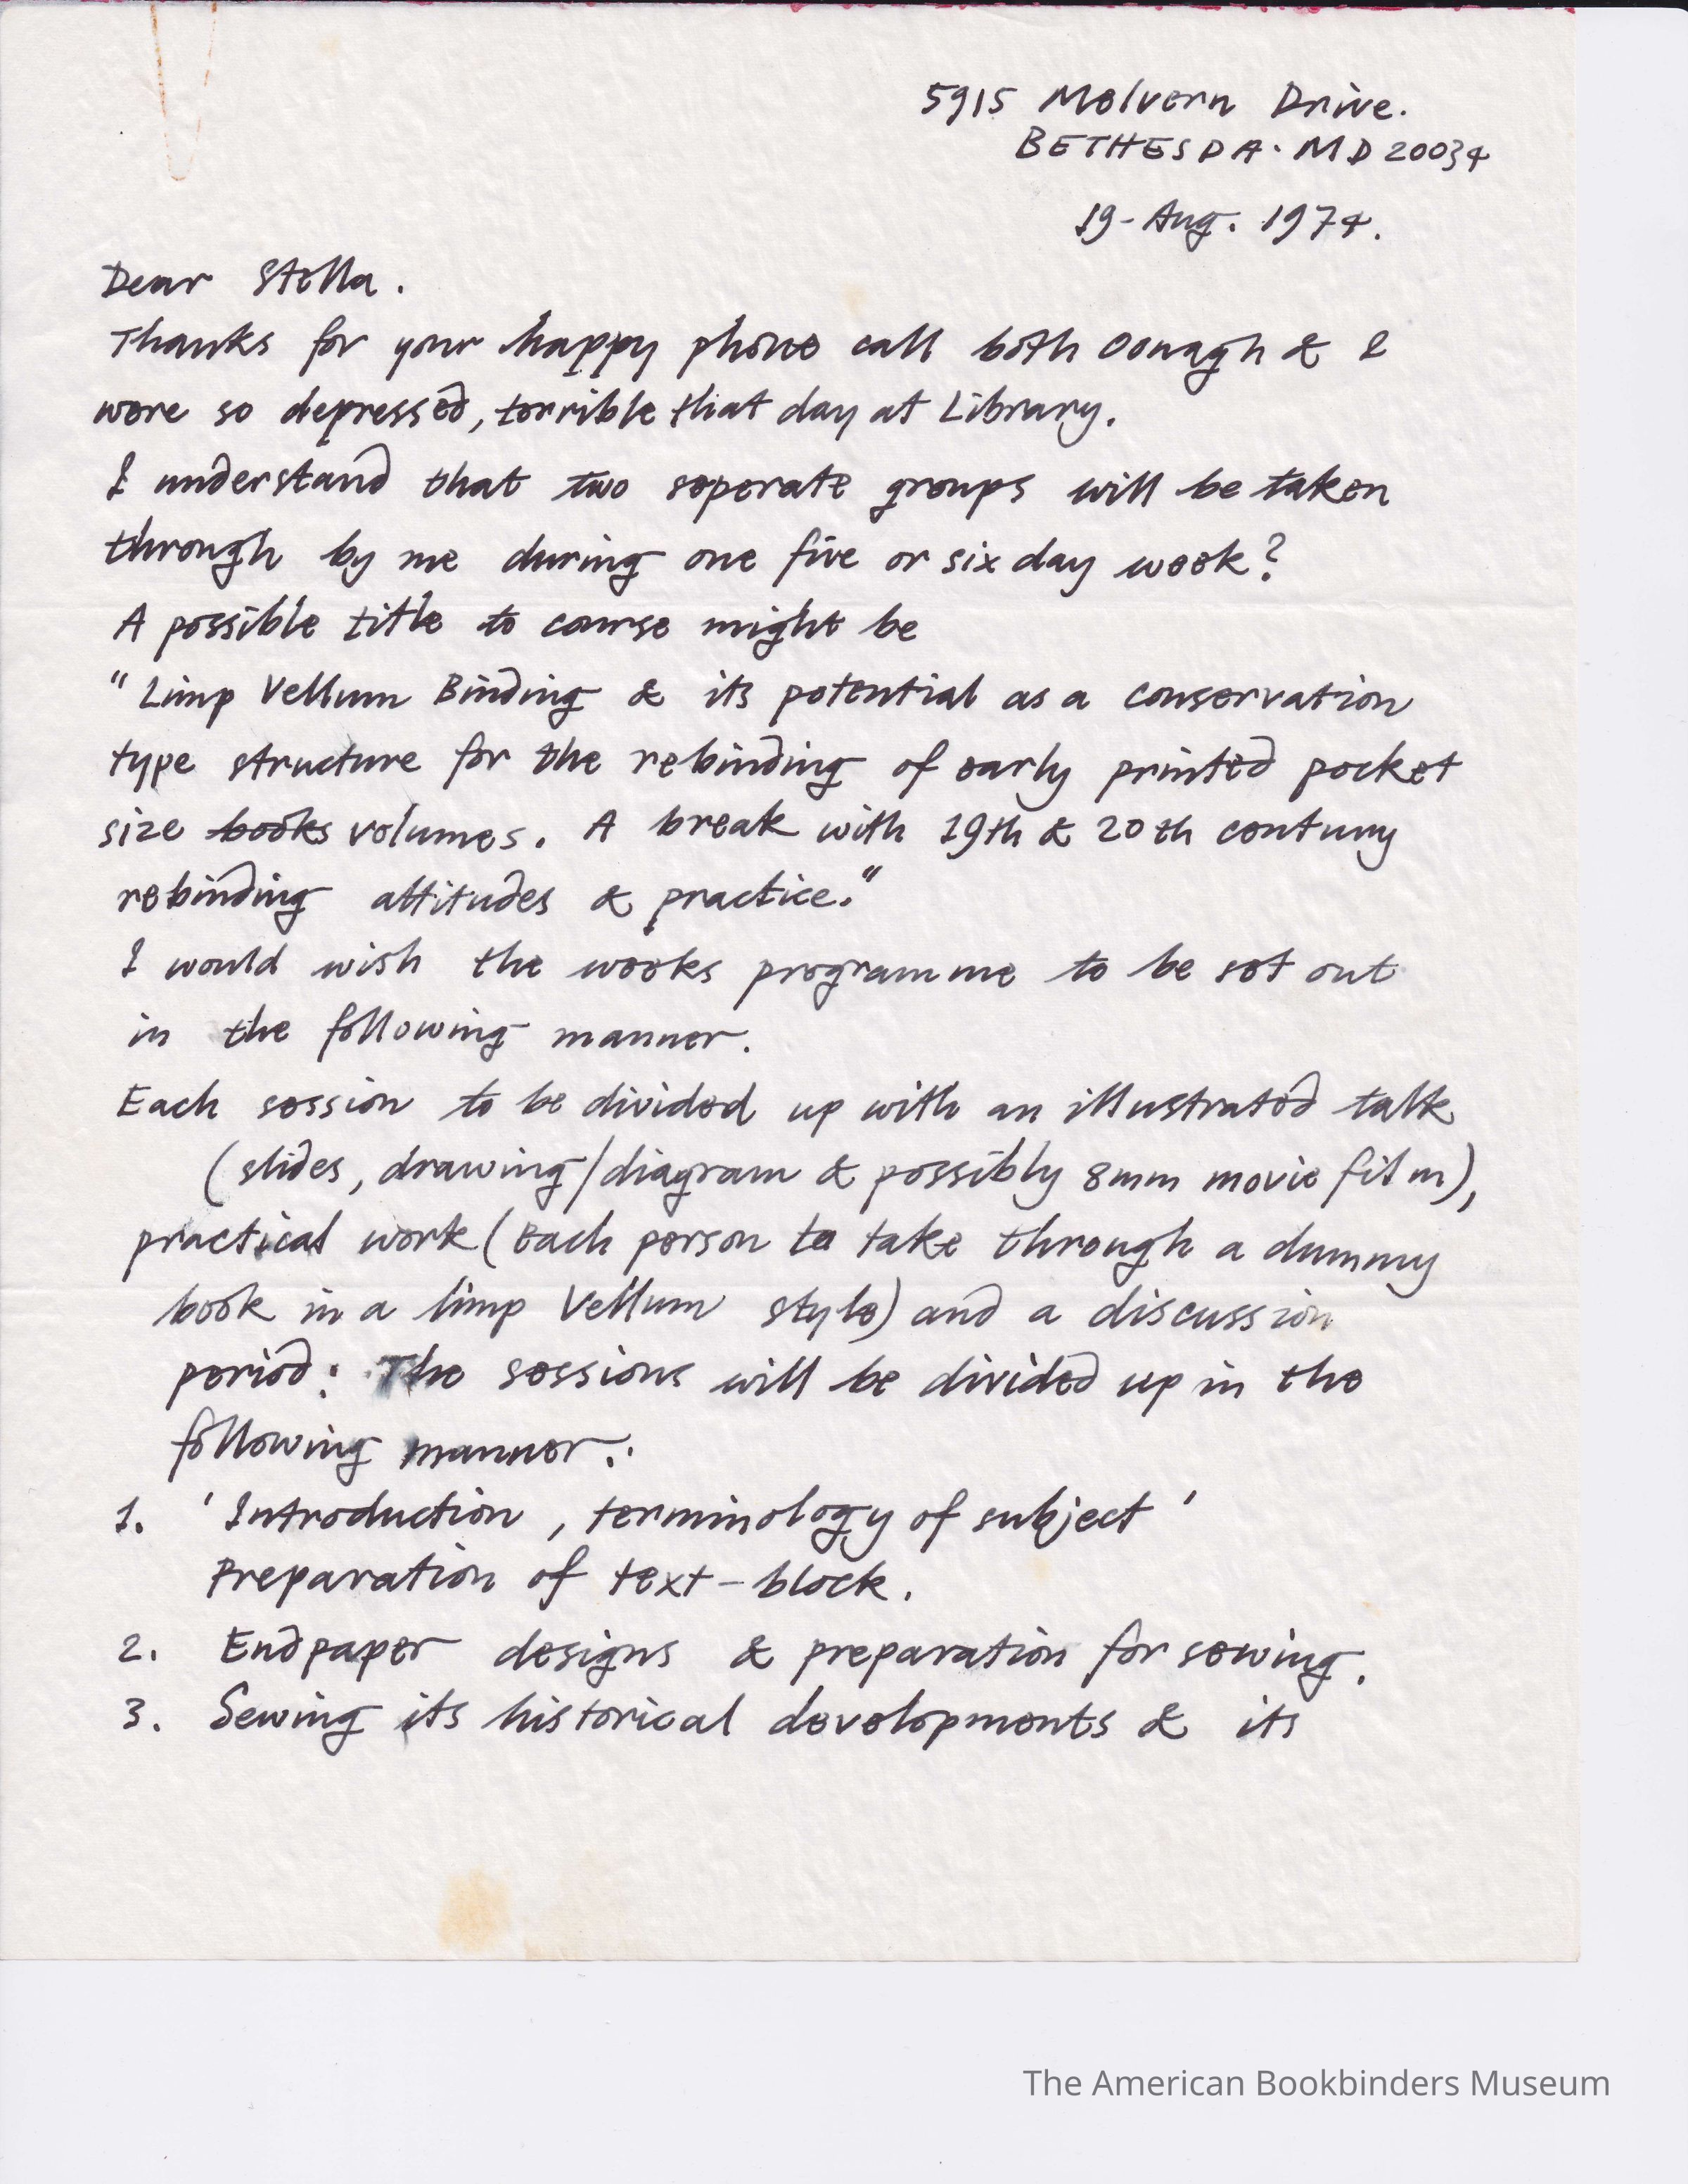 5915 Melvern Drive.
BETHESDA. MD 20034
19-Aug. 1974.
Dear Stella.
Thanks for your happy phone call both Oonagh & I
were so depressed, terrible that day at Library.
I understand that two seperate groups will be taken
through by me during one five or six day week?
A possible title to course might be
"Limp Vellum Binding & its potential as a conservation
type structure for the rebinding of early printed pocket
size books volumes. A break with 19th & 20th century
rebinding attitudes & practice."
I would wish the weeks programme to be set out
in the following manner.
Each session to be divided up with an illustrated talk
(slides, drawing/diagram & possibly 8mm movie film),
practical work (Each person to take through a dummy
book in a limp Vellum style) and a discussion
period: The sessions will be divided up in the
following manner:
1. 'Introduction, terminology of subject'
Preparation of text-block.
2. Endpaper designs & preparation for sewing.
3. Sewing its historical developments & its
The American Bookbinders Museum